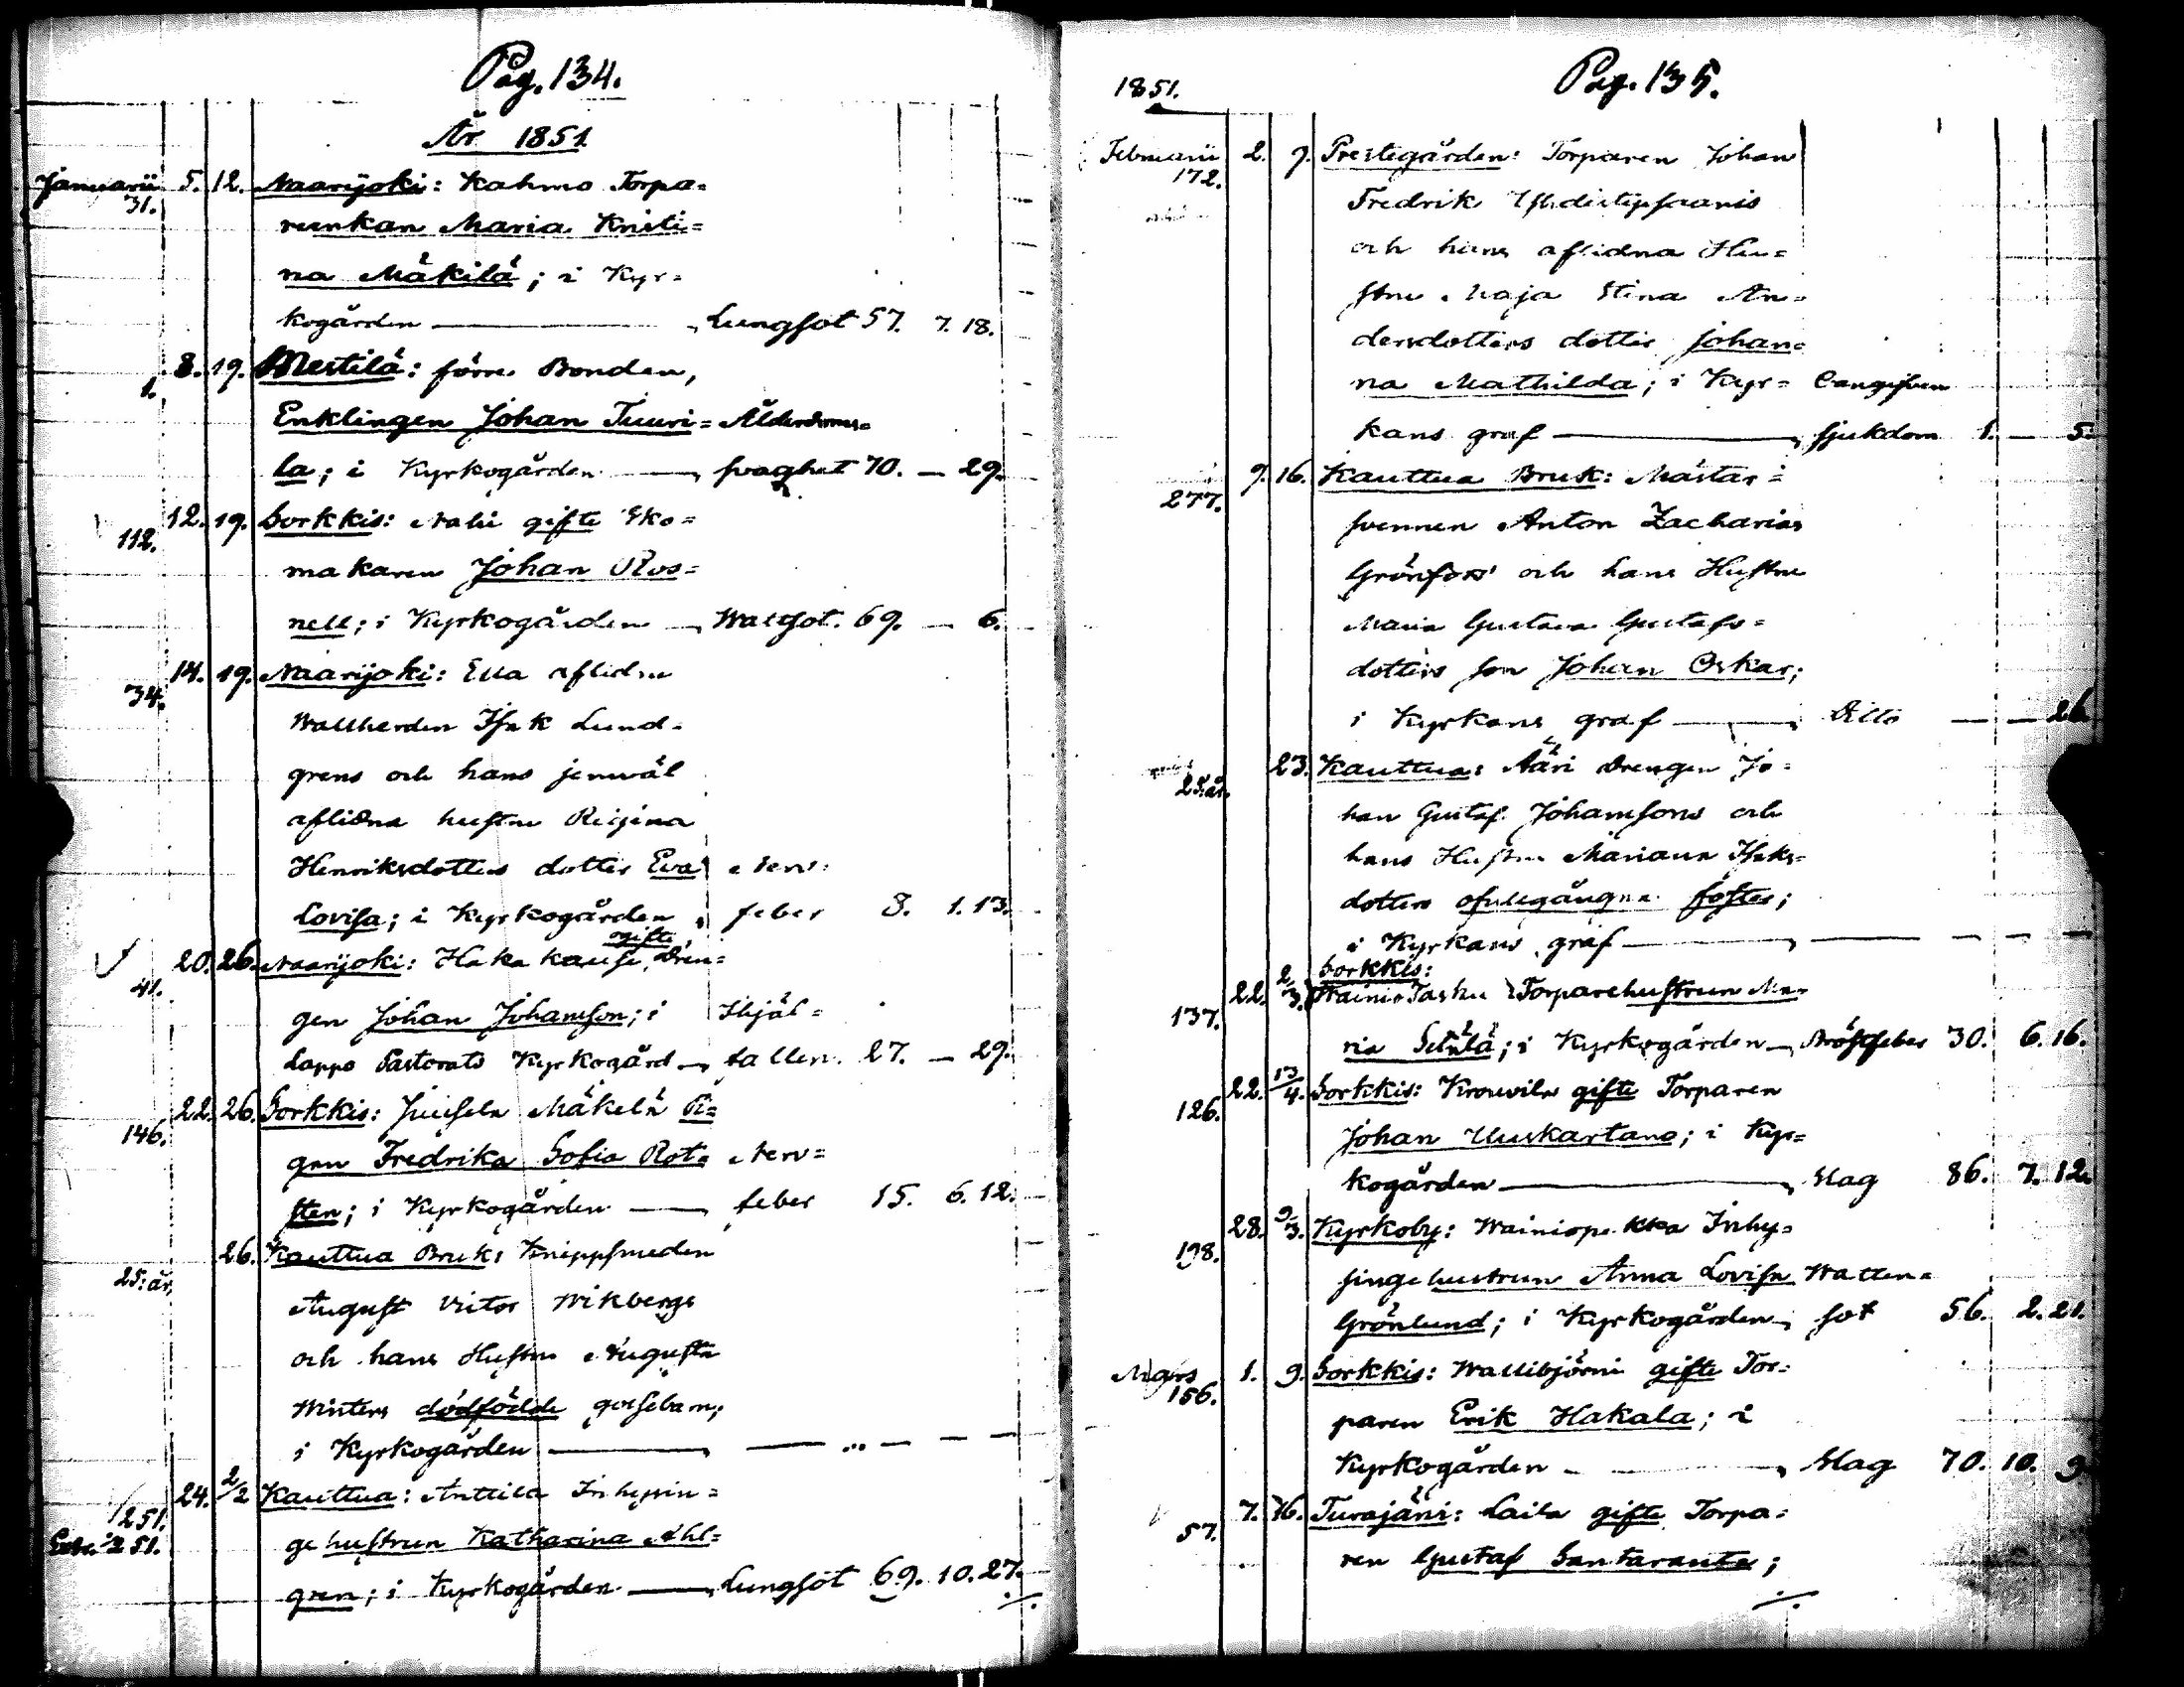 Pag. 134.
År 1851
Januarii 5. 12. Naarijoki: Kahmo Torpa=
31.
reenkan Maria Kristi=
na Mäkilä; i Kyr=
kogården — Lungsot 57. 7. 18.
8. 19. Mestilä: förre Bonden,
1.
Enklingen Johan Tuuri= Ålderdoms=
la; i Kyrkogården — svaghet 70. — 29.
12. 19. Sorkkis: Nahi gifte Sko=
112.
makaren Johan Ros=
nell; i Kyrkogården — Wattsot. 69. — 6.
14. 19. Naarijoki: Ella aflidne
34.
Wallherden Isak Lund=
grens och hans jemväl
aflidna hustru Regina
Henriksdotters dotter Eva Nerv=
Lovisa; i Kyrkogården, feber 8. 1. 13.
gifte
20. 26. Naarijoki: Haka Drän=
41.
gen Johan Johansson; i Ihjäl=
Lappo Pastorats Kyrkogård — fallen. 27. — 29.
22. 26. Sorkkis: Juusela Mäkelä Pi=
146.
gan Fredrika Sofia Rot= Nerv=
sten; i Kyrkogården — feber 15. 6. 12.
26. Kauttua Bruk: Knippsmeden
25: år.
August Victor Wikbergs
och hans Hustru Augusta
Winters dödfödde gossebarn;
i Kyrkogården — — — — —
24. 2/2 Kauttua: Anttila Inhysin=
251.
ge hustrun Katharina Ahl=
251.
gren; i Kyrkogården — Lungsot 69. 10. 27.
./.
Pag. 135.
1851.
Februarii 2. 9. Prestegården: Torparen Johan
172.
Fredrik
och hans aflidna Hu=
stru Maja Stina An=
dersdotters dotter Johan=
na Mathilda; i Kyr= Oangifven
kans graf — sjukdom 1. — 5.
9. 16. Kauttua Bruk: Mästar=
277.
svennen Anton Zacharias
Grönfors och hans Hustru
Maria Gustava Gustafs=
dotters son Johan Oskar;
i Kyrkans graf — Ditto — — 26.
23. Kauttua: Ääri Drengen Jo=
25: år.
han Gustaf Johanssons och
hans Hustru Mariana Isaks=
dotters ofullgångna foster;
i Kyrkans graf — — — — —
Sorkkis:
22. 2/3. Wainio Tasku Torparehustrun Ma=
137.
ria Seliälä; i Kyrkogården — Bröstfeber 30. 6. 16.
22. 13/4. Sorkkis: Krouvila gifte Torparen
126.
Johan Uuskartano; i Kyr=
kogården — Slag 86. 7. 12.
28. 9/3. Kyrkoby: Wainiopekka Inhy=
198.
singehustrun Anna Lovisa Watten=
Grönlund; i Kyrkogården — sot 56. 2. 21.
Mars 1. 9. Sorkkis: Wallibjörni gifte Tor=
156.
paren Erik Hakala; i
Kyrkogården — Slag 70. 10. 9.
7. 16. Turajärvi: Laila gifte Torpa=
57.
ren Gustaf Santaranta;
./.